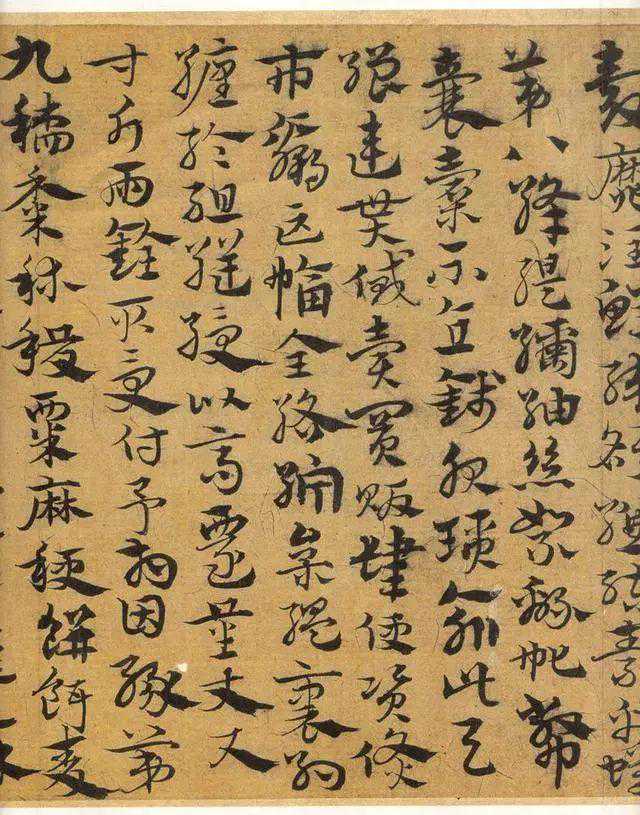 靡
第八絳緹繭紬絲絮綿帊敝
囊橐不直錢服瑣緰此與
繒連貰貸賣買販肆便資貨
市贏匹幅全絡紵枲縕裹約
纏綸組縌綬以高遷量丈尺
寸斤兩銓取受付予相因緣第
九稻黍秫稷粟麻秔餅餌麥